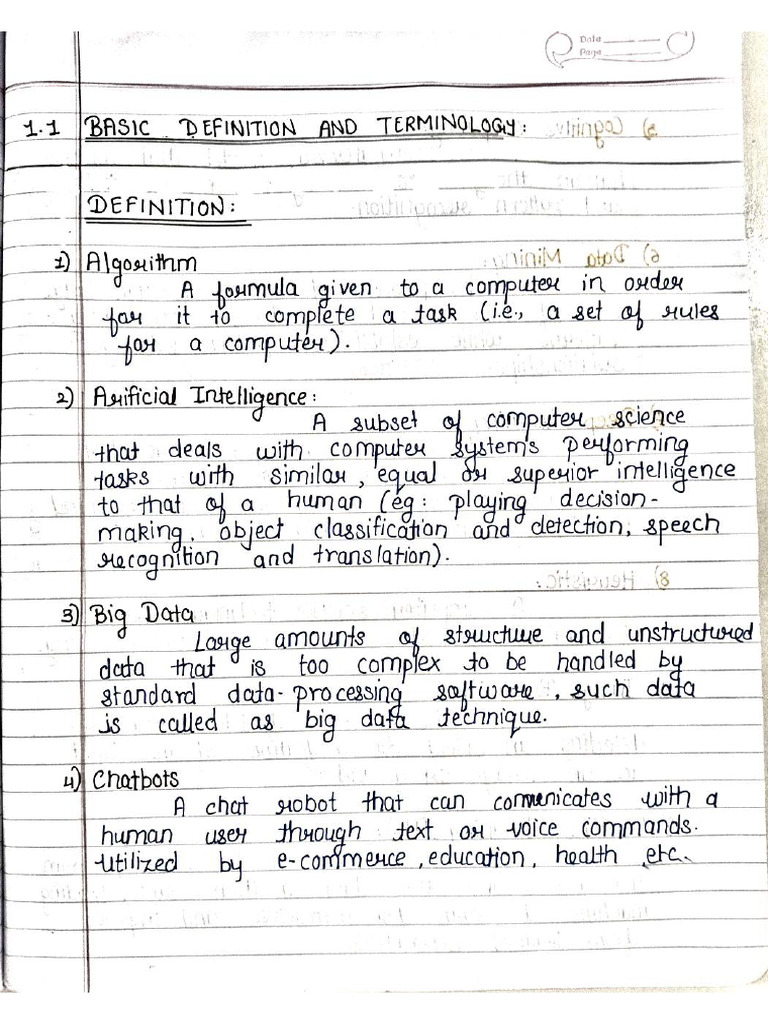 Date
Page
1.1 BASIC DEFINITION AND TERMINOLOGY:
DEFINITION:
1) Algorithm
A formula given to a computer in order
for it to complete a task (i.e., a set of rules
for a computer).
2) Arificial Intelligence:
A subset of computer science
that deals with computer systems performing
tasks with similar, equal or superior intelligence
to that of a human (eg: playing decision-
making, object classification and detection, speech
recognition and translation).
3) Big Data
Large amounts of structure and unstructured
data that is too complex to be handled by
standard data-processing software, such data
is called as big data technique.
4) Chatbots
A chat robot that can comenicates with a
human user through text or voice commands.
utilized by e-commerce, education, health etc.